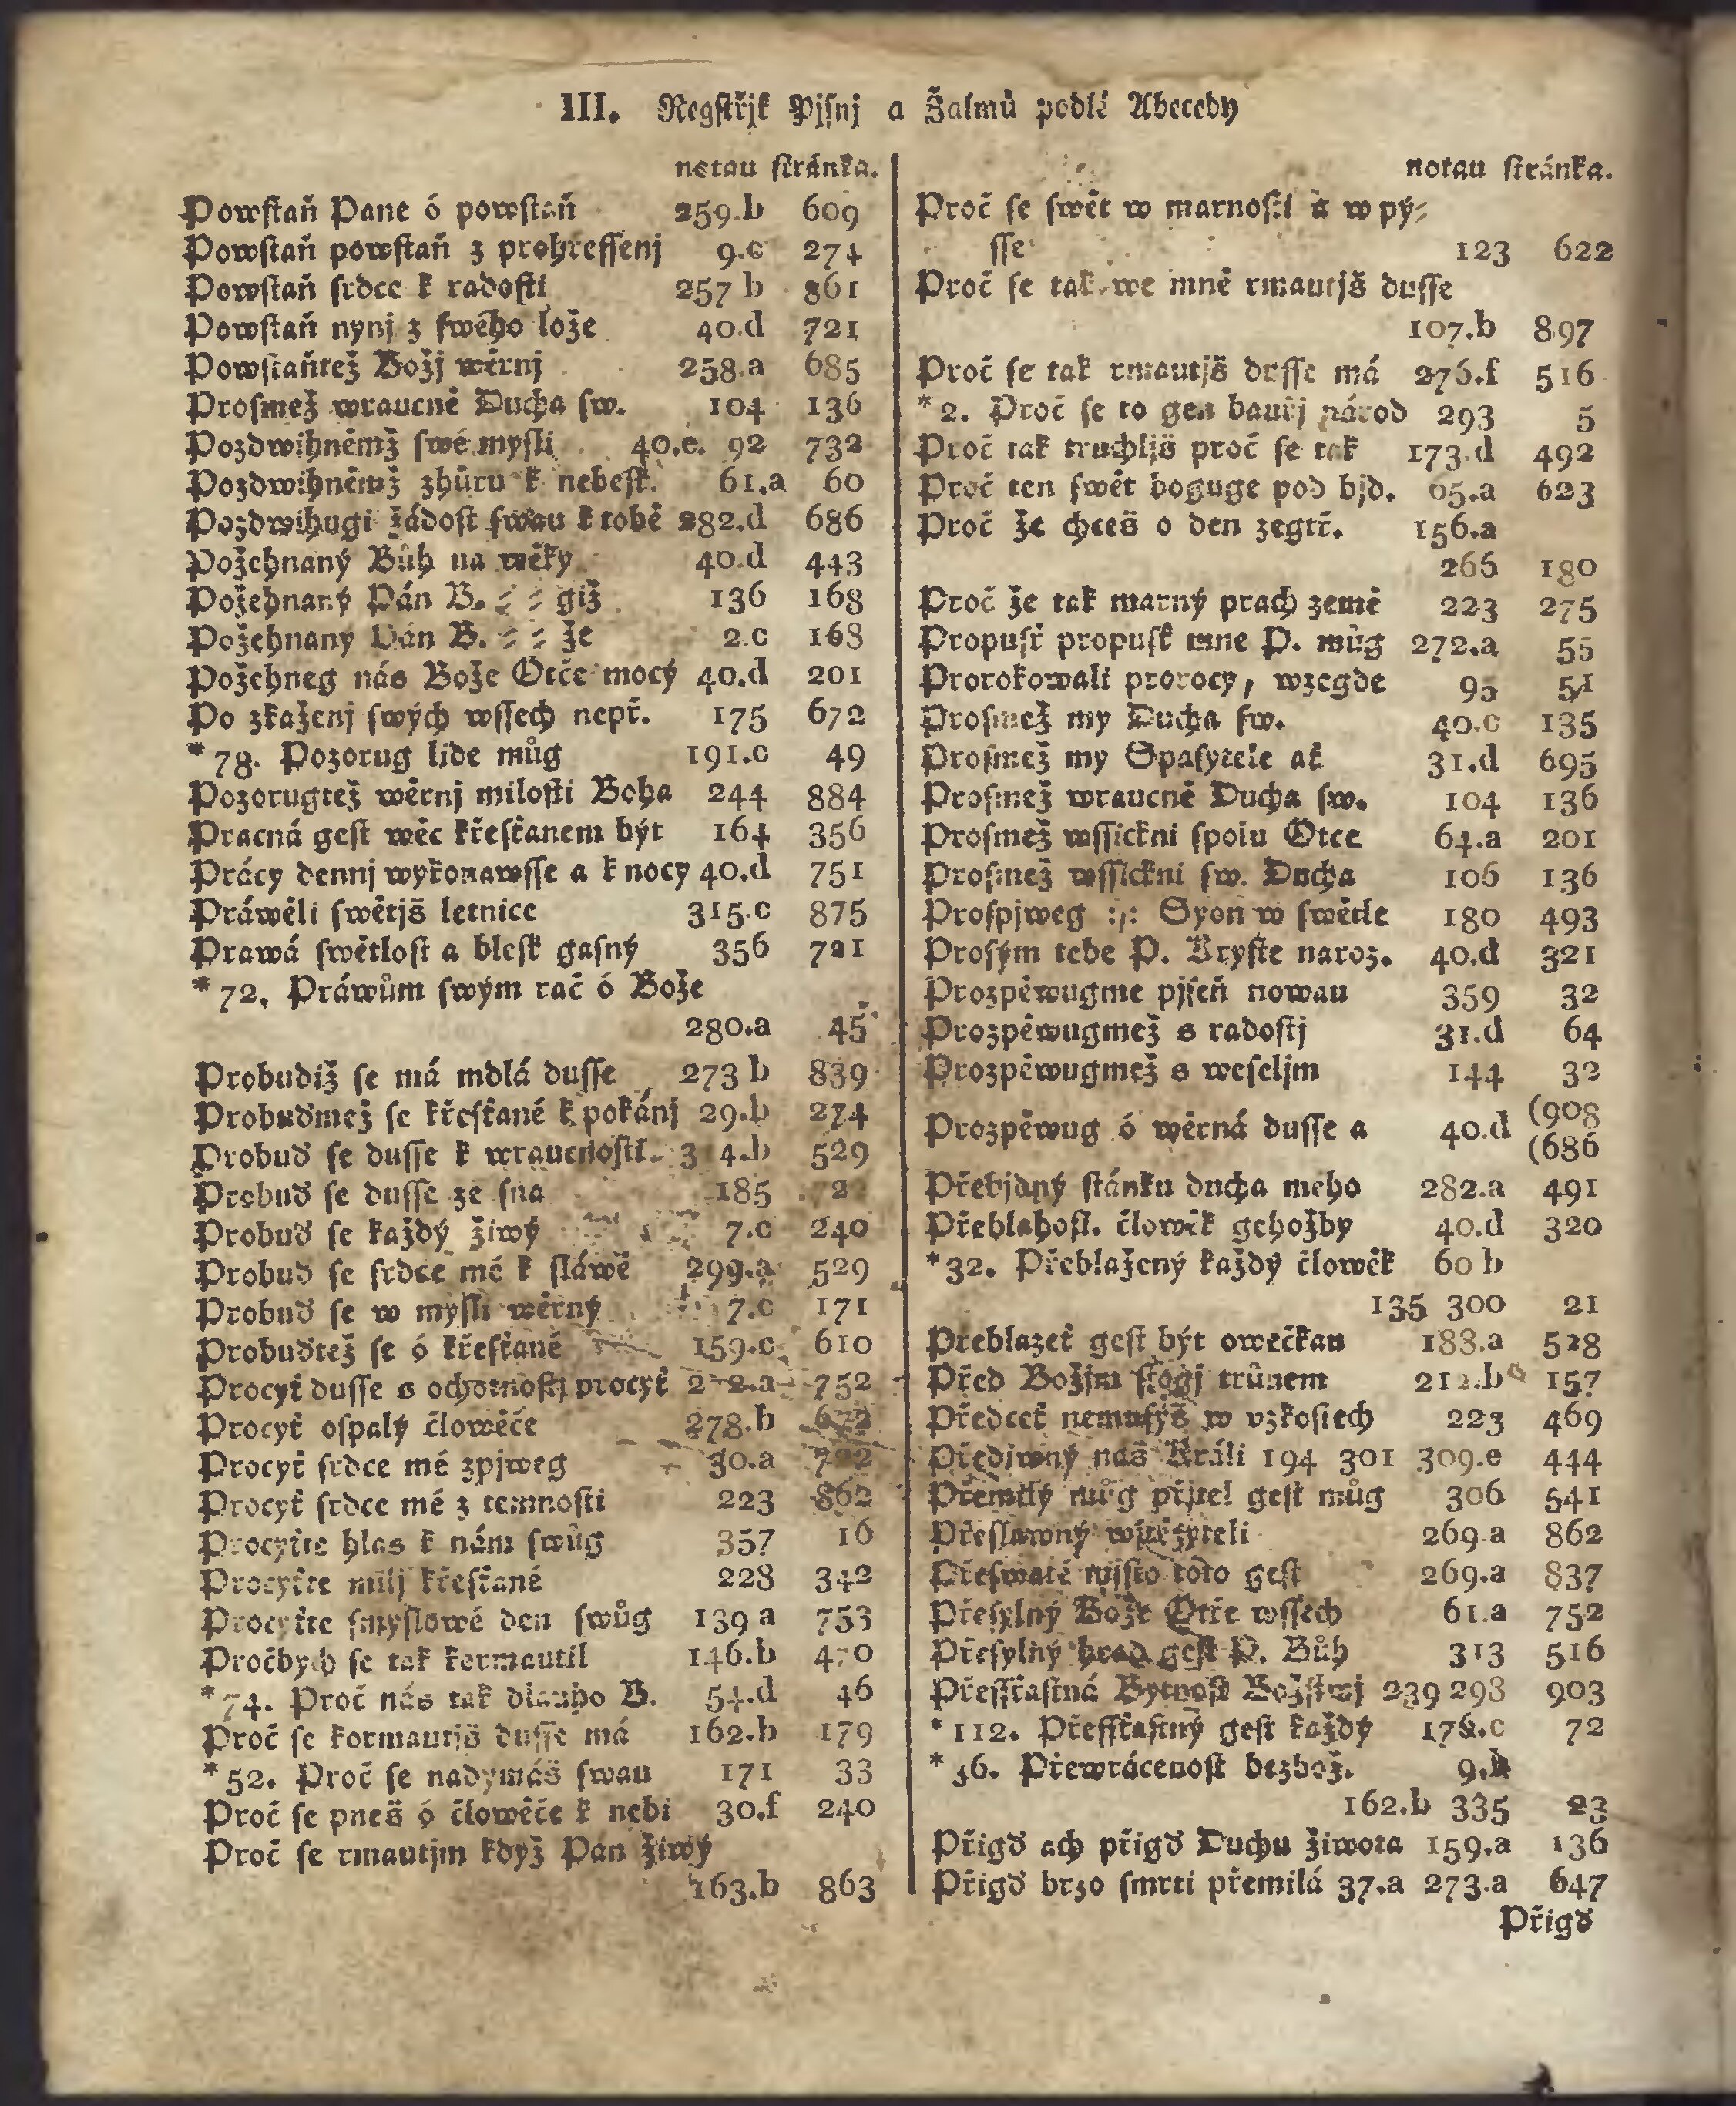 III. Regſtřjk Pjſnj a Žalmů podlé Abecedy
notau ſtránka.
Powſtaň Pane ó powſtaň 259.b 609
Powſtaň powſtaň z prohřeſſenj 9.c 274
Powſtaň ſrdce k radoſti 257 b 861
Powſtaň nynj z ſwého lože 40.d 721
Powſtaňtež Božj wěrnj 258.a 685
Proſmež wraucně Ducha ſw. 104 136
Pozdwihněmž ſwé myſli 40.e. 92 732
Pozdwihněmž zhůru k nebeſk. 61.a 60
Pozdwihugi žádoſt ſwau k tobě 282.d 686
Požehnaný Bůh na wěky 40.d 443
Požehnaný Pán B. ⸗ ⸗ giž 136 168
Požehnaný Pán B. ⸗ ⸗ že 2.c 168
Požehneg nás Bože Otče mocý 40.d 201
Po zkaženj ſwých wſſech nepř. 175 672
*78. Pozorug lide můg 191.c 49
Pozorugtež wěrnj miloſti Boha 244 884
Pracná geſt wěc křeſťanem být 164 356
Prácy dennj wykonawſſe a k nocy 40.d 751
Práwěli ſwětjš letnice 315.c 875
Prawá ſwětloſt a bleſk gaſný 356 721
*72. Práwům ſwým rač ó Bože
280.a 45
Probudiž ſe má mdlá duſſe 273 b 839
Probuďmež ſe křeſťané k pokánj 29.b 274
Probuď ſe duſſe k wraucnoſti. 314.b 529
Probuď ſe duſſe ze ſna 185 2
Probuď ſe každý žiwý 7.c 240
Probuď ſe ſrdce mé k ſláwě 299.a 529
Probuď ſe w myſli wěrný 7.c 171
Probuďtež ſe ó křeſťané 159.c 610
Procyť duſſe s ochotnoſtj procyť 272.a 752
Procyť oſpalý člowěče 278.b 672
Procyť ſrdce mé zpjweg 30.a 722
Procyť ſrdce mé z temnoſti 223 862
Procyťte hlas k nám ſwůg 357 16
Procyťte milj křeſťané 228 342
Procyťte ſmyſlowé den ſwůg 139 a 753
Pročbych ſe tak kormautil 146.b 470
*74. Proč nás tak dlauho B. 54.d 46
Proč ſe kormautjš duſſe má 162.b 179
*52. Proč ſe nadymáš ſwau 171 33
Proč ſe pneš ó člowěče k nebi 30.f 240
Proč ſe rmautjm když Pán žiwý
163.b 863
notau ſtránka.
Proč ſe ſwět w marnoſti a w pý⸗
ſſe 123 622
Proč ſe tak we mně rmautjš duſſe
107.b 897
Proč ſe tak rmautjš duſſe má 276.f 516
*2. Proč ſe to gen bauřj národ 293 5
Proč tak truchljš proč ſe tak 173.d 492
Proč ten ſwět boguge pod bjd. 65.a 623
Proč že chceš o den zegtř. 156.a
266 180
Proč že tak marný prach země 223 275
Propuſť propuſť mne P. můg 272.a 55
Prorokowali prorocy, wzegde 95 51
Proſmež my Ducha ſw. 40.c 135
Proſmež my Spaſytele ať 31.d 695
Proſmež wraucně Ducha ſw. 104 136
Proſmež wſſickni ſpolu Otce 64.a 201
Proſmež wſſickni ſw. Ducha 106 136
Proſpjweg :,: Syon w ſwětle 180 493
Proſým tebe P. Kryſte naroz. 40.d 321
Prozpěwugme pjſeň nowau 359 32
Prozpěwugmež s radoſtj 31.d 64
Prozpěwugmež s weſeljm 144 32
Prozpěwug ó wěrná duſſe a 40.d (908
(686
Přebjdný ſtánku ducha mého 282.a 491
Přeblahoſl. člowěk gehožby 40.d 320
*32. Přeblažený každý člowěk 60 b
135 300 21
Přeblazeť geſt být owečkau 183.a 528
Před Božjm ſtogj trůnem 212.b 157
Předceť nemuſýš w vzkoſtech 223 469
Předjwný náš Králi 194 301 309.e 444
Přemilý můg přjtel geſt můg 306 541
Přeſlawný wjtězyteli 269.a 862
Přeſwaté mjſto toto geſt 269.a 837
Přeſylný Bože Otče wſſech 61.a 752
Přeſylný hrad geſt P. Bůh 313 516
Přeſſťaſtná Bytnoſt Božſtwj 239 298 903
*112. Přeſſťaſtný geſt každý 176.c 72
*36. Přewrácenoſt bezbož. 9.b
162.b 335 23
Přigď ach přigď Duchu žiwota 159.a 136
Přigď brzo ſmrti přemilá 37.a 273.a 647
Přigď